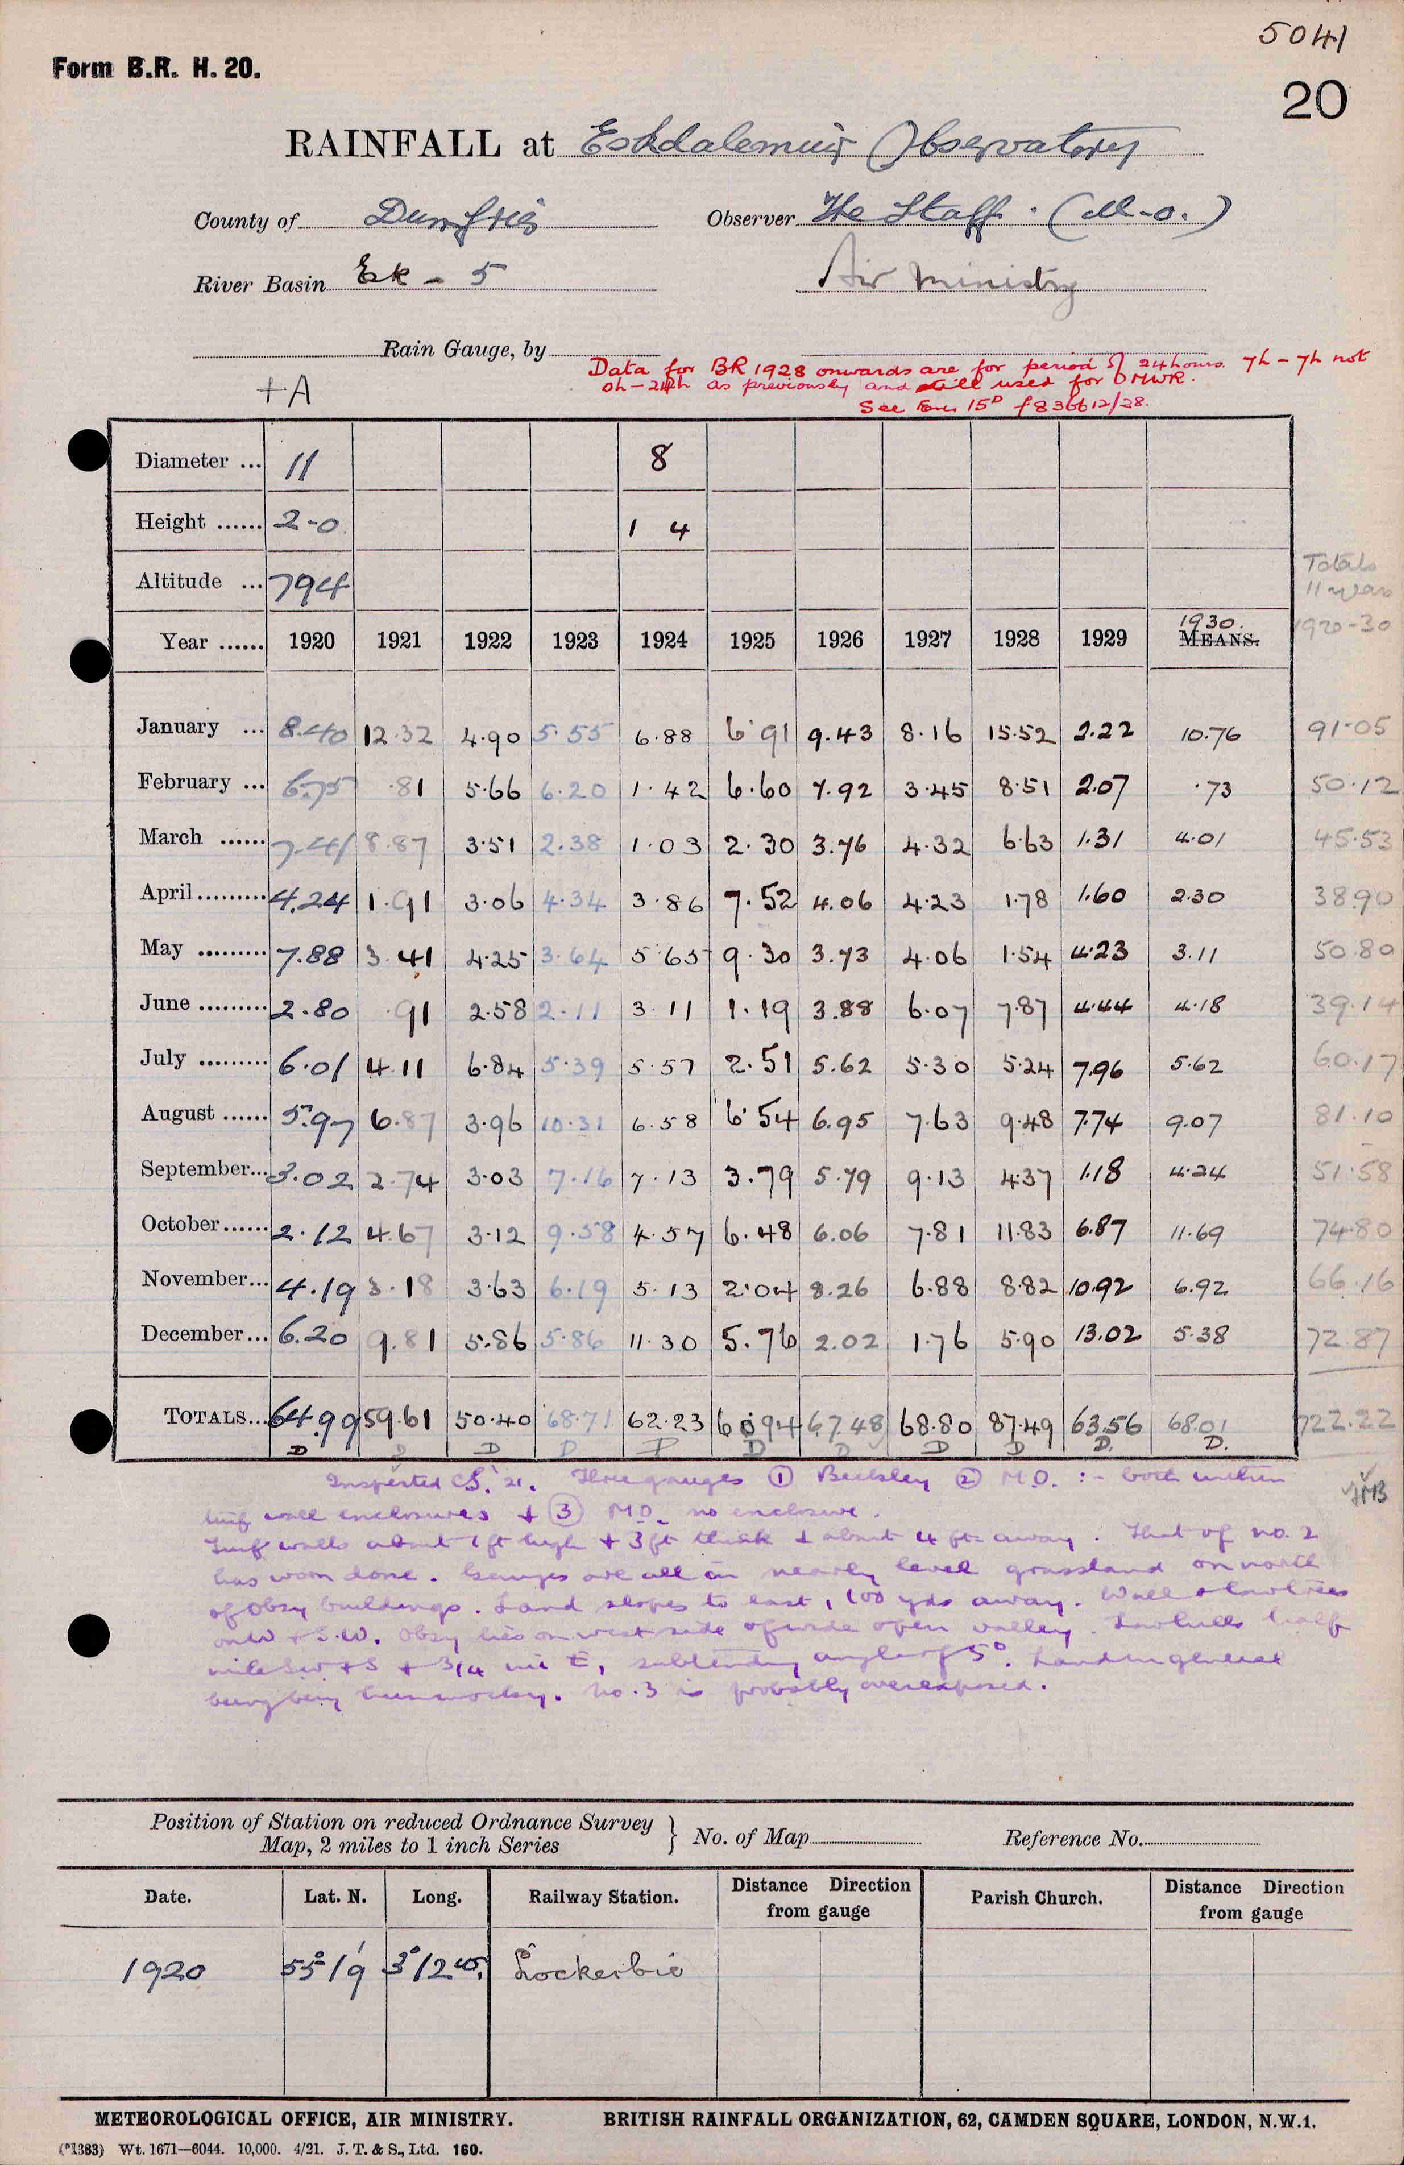 5041
Form B.R. H. 20.
20
RAINFALL at Eskdalemuir Observatory
County of Dumfries Observer The Staff. (M.O.)
River Basin Esk - 5 Air Ministry
Rain Gauge, by
Data for BR 1928 onwards are for period of 24 hours 7h - 7h not
0h-24h as previously and still used for DMWR.
+A
See 15D f 8366 12/28.
Diameter ... 11 8
Height ...... 2-0 1 4
Altitude ... 794
Totals
11 years
1920-30
Year ...... 1920 1921 1922 1923 1924 1925 1926 1927 1928 1929 1930. MEANS.
January ... 8.40 12.32 4.90 5.55 6.88 6.91 9.43 8.16 15.52 2.22 10.76 91.05
February ... 6.75 .81 5.66 6.20 1.42 6.60 7.92 3.45 8.51 2.07 .73 50.12
March ...... 7.41 8.87 3.51 2.38 1.03 2.30 3.76 4.32 6.63 1.31 4.01 45.53
April ......... 4.24 1.91 3.06 4.34 3.86 7.52 4.06 4.23 1.78 1.60 2.30 38.90
May ......... 7.88 3.41 4.25 3.64 5.65 9.30 3.73 4.06 1.54 4.23 3.11 50.80
June ......... 2.80 .91 2.58 2.11 3.11 1.19 3.88 6.07 7.87 4.44 4.18 39.14
July ......... 6.01 4.11 6.84 5.39 5.57 2.51 5.62 5.30 5.24 7.96 5.62 60.17
August ...... 5.97 6.87 3.96 10.31 6.58 6.54 6.95 7.63 9.48 7.74 9.07 81.10
September... 3.02 2.74 3.03 7.16 7.13 3.79 5.79 9.13 4.37 1.18 4.24 51.58
October ...... 2.12 4.67 3.12 9.58 4.57 6.48 6.06 7.81 11.83 6.87 11.69 74.80
November... 4.19 3.18 3.63 6.19 5.13 2.04 8.26 6.88 8.82 10.92 6.92 66.16
December... 6.20 9.81 5.86 5.86 11.30 5.76 2.02 1.76 5.90 13.02 5.38 72.87
TOTALS... 64.99 59.61 50.40 68.71 62.23 60.94 67.48 68.80 87.49 63.56 68.01 722.22
D D D D D D D D D D. D.
Inspected CS. 21. Three gauges ① Beckley ② M.O. :- both within
turf wall enclosures + ③ M.O. no enclosure.
Turf walls about 1ft high + 3ft thick + about 4 ft away. That of no. 2
has worn done. Gauges are all on nearly level grassland on north
of Obsy buildings. Land slopes to east, 100 yds away. Wall + low trees
on W + S.W. Obsy lies on west side of wide open valley. Low hills half
mile SW + S + 3/4 mi E, subtending angle of 5°. Land in general
being. No. 3 is probably overexposed.
JMB
Position of Station on reduced Ordnance Survey
Map, 2 miles to 1 inch Series } No. of Map Reference No.
Date. Lat. N. Long. Railway Station. Distance Direction from gauge Parish Church. Distance Direction from gauge
1920 55°19' 3°12 W. Lockerbie
METEOROLOGICAL OFFICE, AIR MINISTRY. BRITISH RAINFALL ORGANIZATION, 62, CAMDEN SQUARE, LONDON, N.W.1.
(*1383) Wt. 1671—6044. 10,000. 4/21. J. T. & S., Ltd. 160.